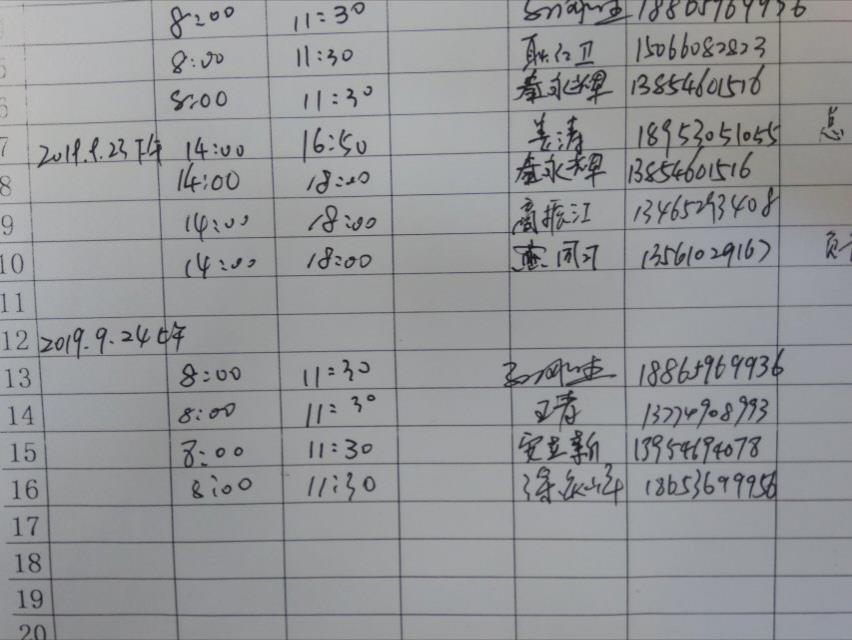 8:00 11:30 18865969936
8:00 11:30 耿红卫 15066082823
6 8:00 11:30 秦永辉 13854601516
7 2019.9.23下午 14:00 16:50 姜涛 18953051055 总
8 14:00 18:00 秦永辉 13854601516
9 14:00 18:00 高振江 13465293408
10 14:00 18:00 13561029167
11
12 2019.9.24上午
13 8:00 11:30 18865969936
14 8:00 11:30 王青 13774908993
15 8:00 11:30 安立新 13954694078
16 8:00 11:30 18653699956
17
18
19
20